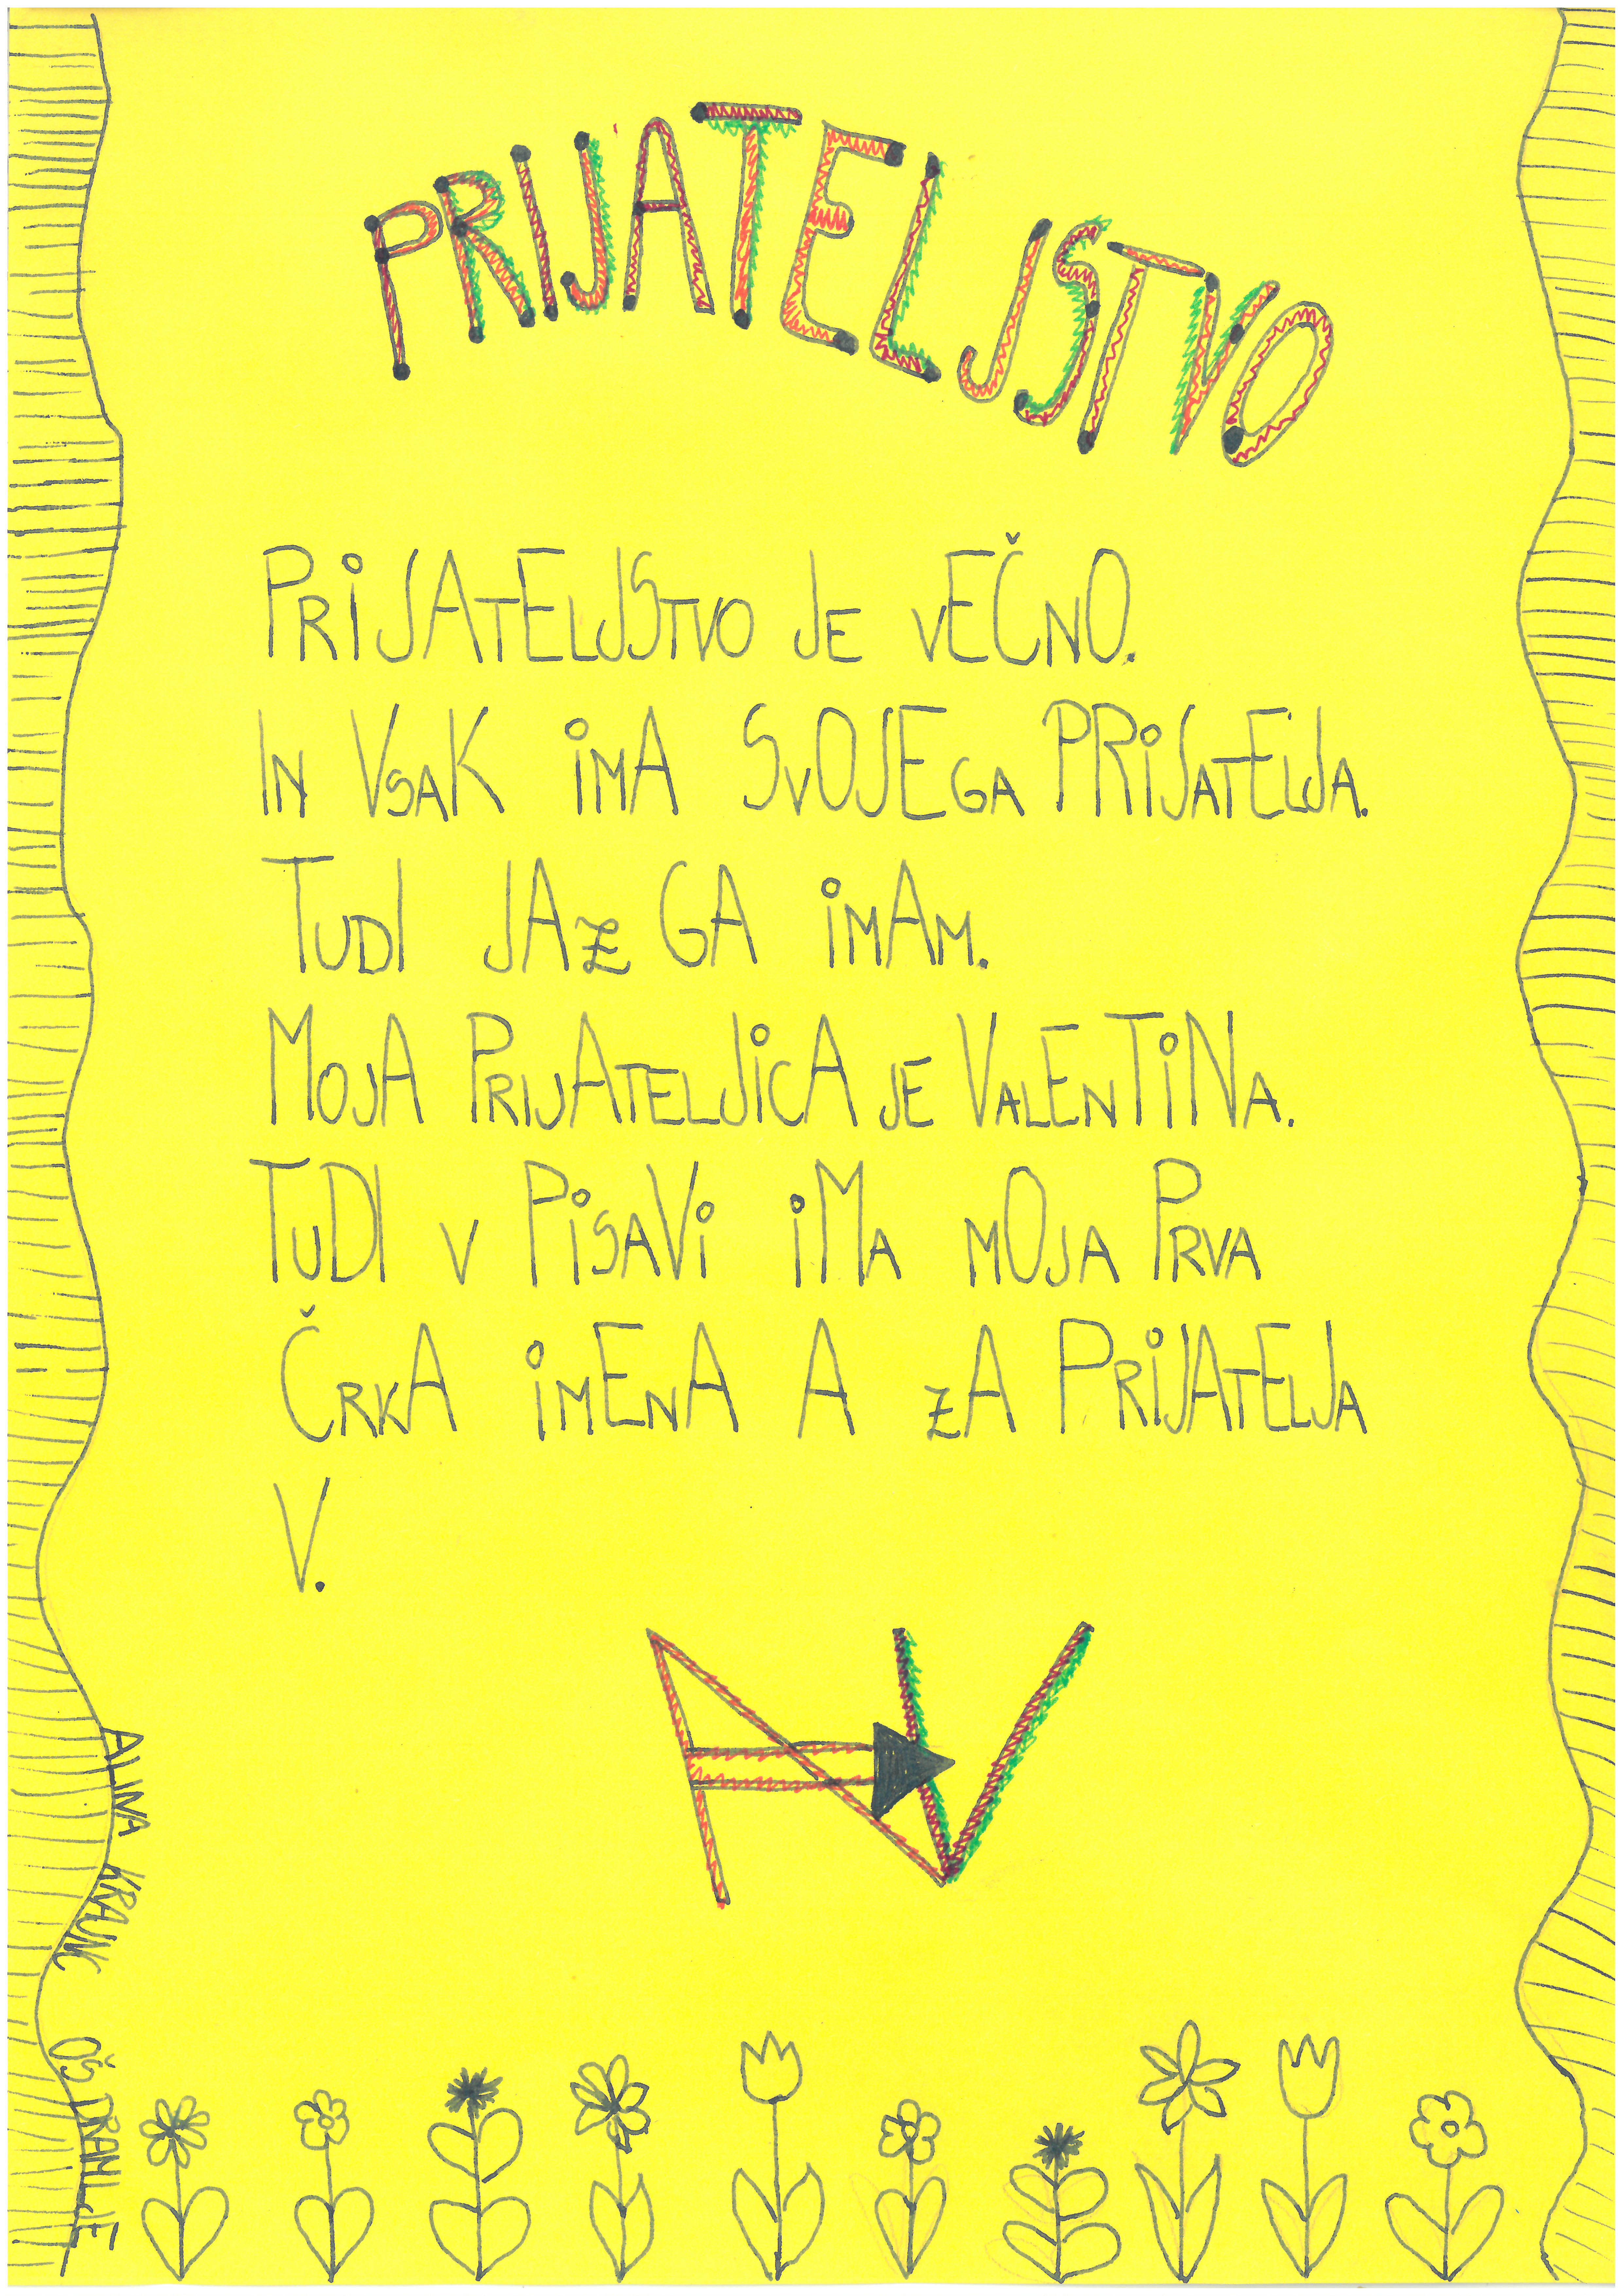 PRIJATELJSTVO
PRIJATELJSTVO JE VEČNO.
IN VSAK IMA SVOJEGA PRIJATELJA.
TUDI JAZ GA IMAM.
MOJA PRIJATELJICA JE VALENTINA.
TUDI V PISAVI IMA MOJA PRVA
ČRKA IMENA A ZA PRIJATELJA
V.
AV
ALINA KRAJNC OŠ DRAMLJE